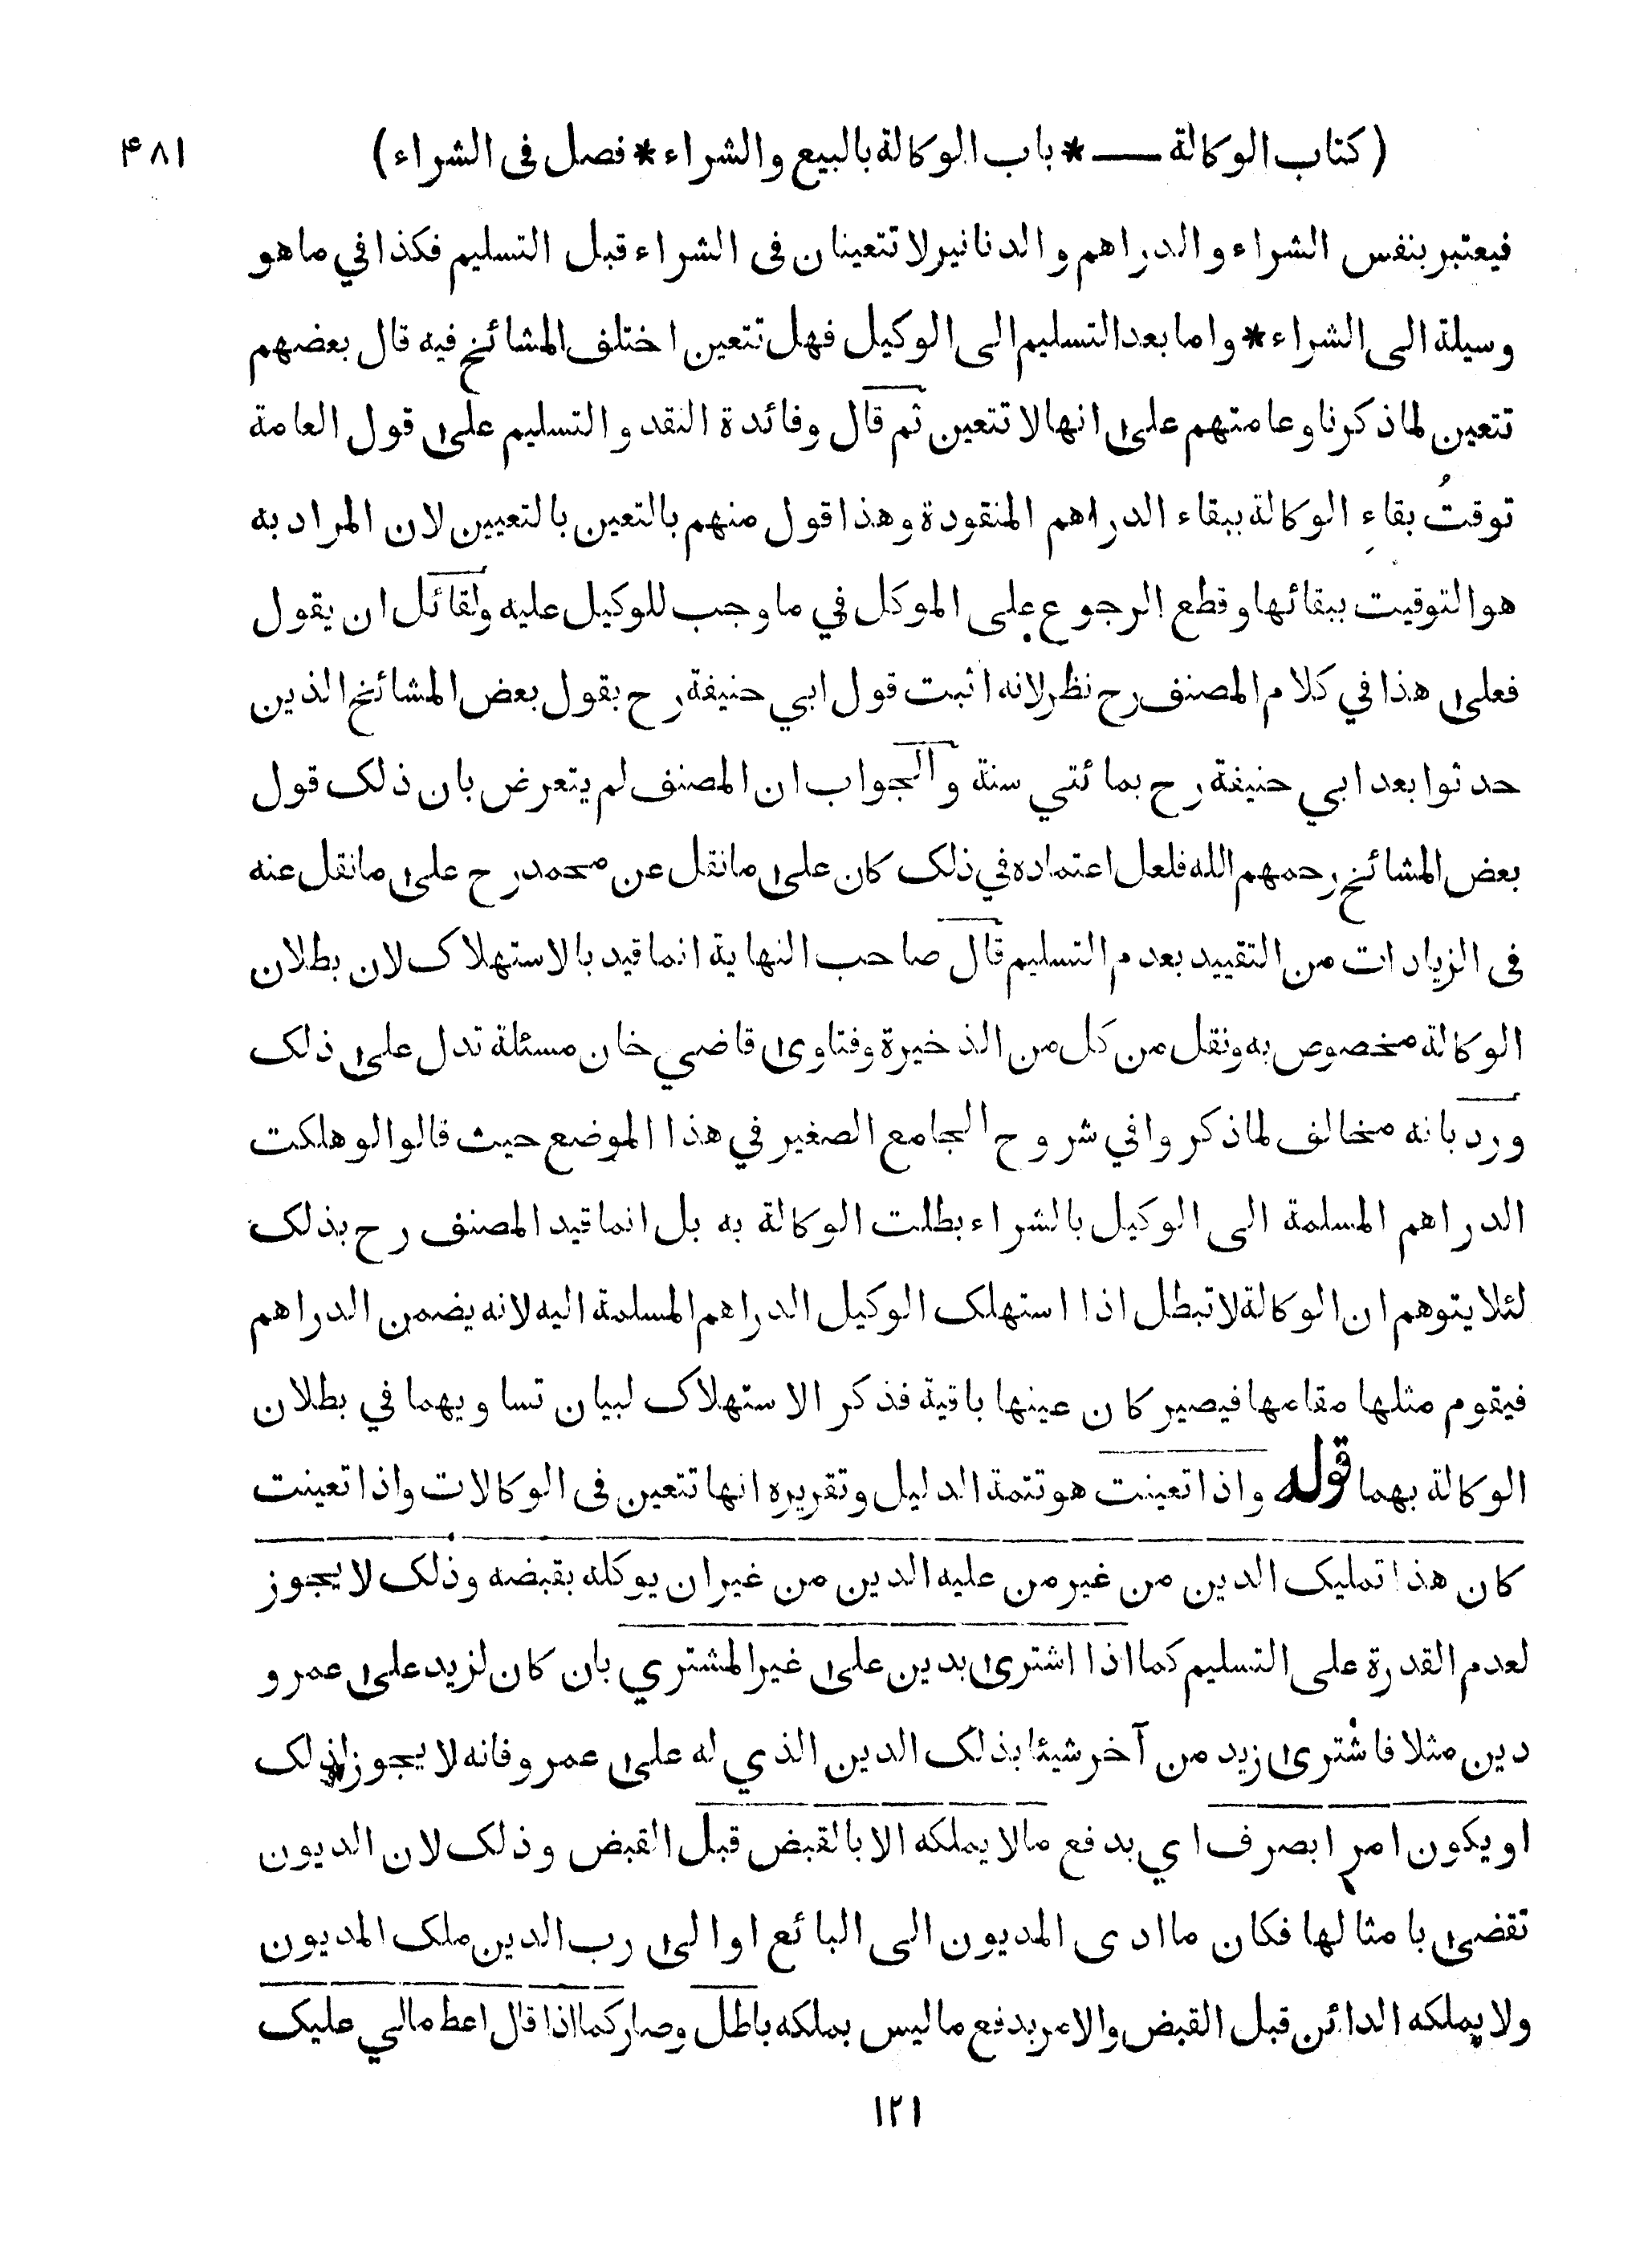 (كتاب الوكالة — * باب الوكالة بالبيع والشراء * فصل فى الشراء) ۴۸۱
فيعتبر بنفس الشراء والدراهم والدنانير لا تتعينان فى الشراء قبل التسليم فكذا في ما هو
وسيلة الى الشراء * واما بعد التسليم الى الوكيل فهل تتعين اختلف المشائخ فيه قال بعضهم
تتعين لما ذكرنا وعامتهم على انها لا تتعين ثم قال وفائدة النقد والتسليم على قول العامة
توقتُ بقاءِ الوكالة ببقاء الدراهم المنقودة وهذا قول منهم بالتعين بالتعيين لان المراد به
هو التوقيت ببقائها وقطع الرجوع على الموكل في ما وجب للوكيل عليه ولقائل ان يقول
فعلى هذا في كلام المصنف رح نظر لانه اثبت قول ابي حنيفة رح بقول بعض المشائخ الذين
حدثوا بعد ابي حنيفة رح بمائتي سنة والجواب ان المصنف لم يتعرض بان ذلك قول
بعض المشائخ رحمهم الله فلعل اعتماده في ذلك كان على ما نقل عن محمد رح على ما نقل عنه
فى الزيادات من التقييد بعدم التسليم قال صاحب النهاية انما قيد بالاستهلاك لان بطلان
الوكالة مخصوص به ونقل من كل من الذخيرة وفتاوى قاضي خان مسئلة تدل على ذلك
ورد بانه مخالف لما ذكروا في شروح الجامع الصغير في هذا الموضع حيث قالوا لو هلكت
الدراهم المسلمة الى الوكيل بالشراء بطلت الوكالة به بل انما قيد المصنف رح بذلك
لئلا يتوهم ان الوكالة لا تبطل اذا استهلك الوكيل الدراهم المسلمة اليه لانه يضمن الدراهم
فيقوم مثلها مقامها فيصير كان عينها باقية فذكر الاستهلاك لبيان تساويهما في بطلان
الوكالة بهما قوله واذا تعينت هو تتمة الدليل وتقريره انها تتعين فى الوكالات واذا تعينت
كان هذا تمليك الدين من غير من عليه الدين من غير ان يوكله بقبضه وذلك لا يجوز
لعدم القدرة على التسليم كما اذا اشترى بدين على غير المشتري بان كان لزيد على عمرو
دين مثلا فاشترى زيد من آخر شيئا بذلك الدين الذي له على عمرو فانه لا يجوز لذلك
او يكون امرا بصرف اي بدفع مالا يملكه الا بالقبض قبل القبض وذلك لان الديون
تقضى بامثالها فكان ما ادى المديون الى البائع او الى رب الدين ملك المديون
ولا يملكه الدائن قبل القبض والامر بدفع ما ليس بملكه باطل وصار كما اذا قال اعط مالي عليك
۱۲۱